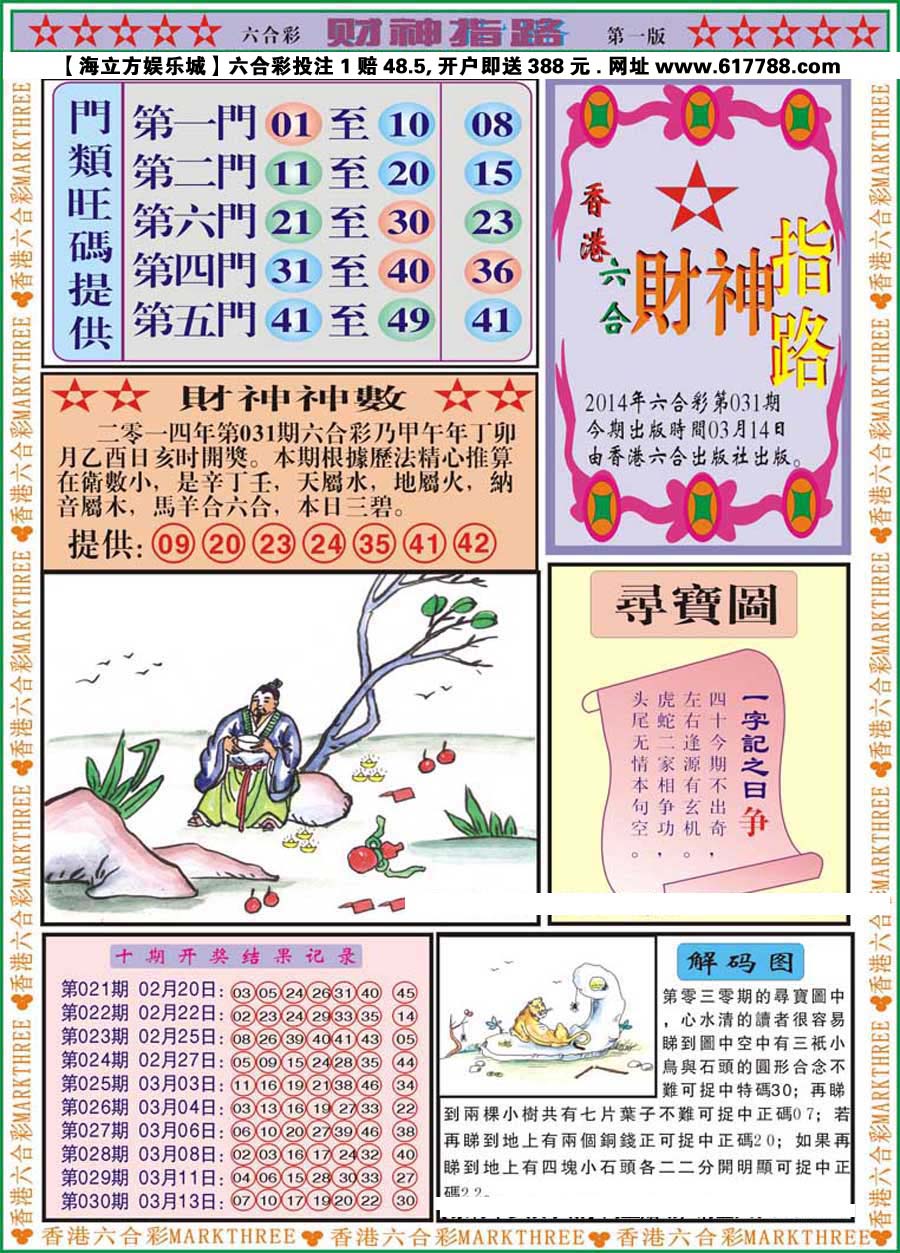 六合彩 财神指路 第一版
【海立方娱乐城】六合彩投注1赔48.5,开户即送388元.网址www.617788.com
門類旺碼提供
第一門 01 至 10 08
第二門 11 至 20 15
第六門 21 至 30 23
第四門 31 至 40 36
第五門 41 至 49 41
香港六合
財神
指路
2014年六合彩第031期
今期出版時間03月14日
由香港六合出版社出版。
財神神數
二零一四年第031期六合彩乃甲午年丁卯
月乙酉日亥时開獎。本期根據歷法精心推算
在衛數小，是辛丁壬，天屬水，地屬火，納
音屬木，馬羊合六合，本日三碧。
提供: 09 20 23 24 35 41 42
尋寶圖
一字記之曰 争
四十今期不出奇，
左右逢源有玄机。
虎蛇二家相争功，
头尾无情本句空。
十期开奖结果记录
第021期 02月20日: 03 05 24 26 31 40 45
第022期 02月22日: 02 23 24 29 33 35 14
第023期 02月25日: 08 26 39 40 41 43 05
第024期 02月27日: 05 09 15 24 28 35 44
第025期 03月03日: 11 16 19 21 38 46 34
第026期 03月04日: 03 13 16 19 27 33 22
第027期 03月06日: 06 10 20 27 39 46 38
第028期 03月08日: 02 03 16 17 24 32 40
第029期 03月11日: 04 06 15 28 30 33 27
第030期 03月13日: 07 10 17 19 20 22 30
解码图
第零三零期的尋寶圖中
，心水清的讀者很容易
睇到圖中空中有三衹小
鳥與石頭的圓形合念不
難可捉中特碼30；再睇
到兩棵小樹共有七片葉子不難可捉中正碼07；若
再睇到地上有兩個銅錢正可捉中正碼20；如果再
睇到地上有四塊小石頭各二二分開明顯可捉中正
碼22。
香港六合彩MARKTHREE
香港六合彩MARKTHREE
香港六合彩MARKTHREE
香港六合彩MARKTHREE
香港六合彩MARKTHREE
香港六合彩MARKTHREE
香港六合彩MARKTHREE
香港六合彩MARKTHREE
香港六合彩MARKTHREE
香港六合彩MARKTHREE
香港六合彩MARKTHREE
香港六合彩MARKTHREE
香港六合彩MARKTHREE